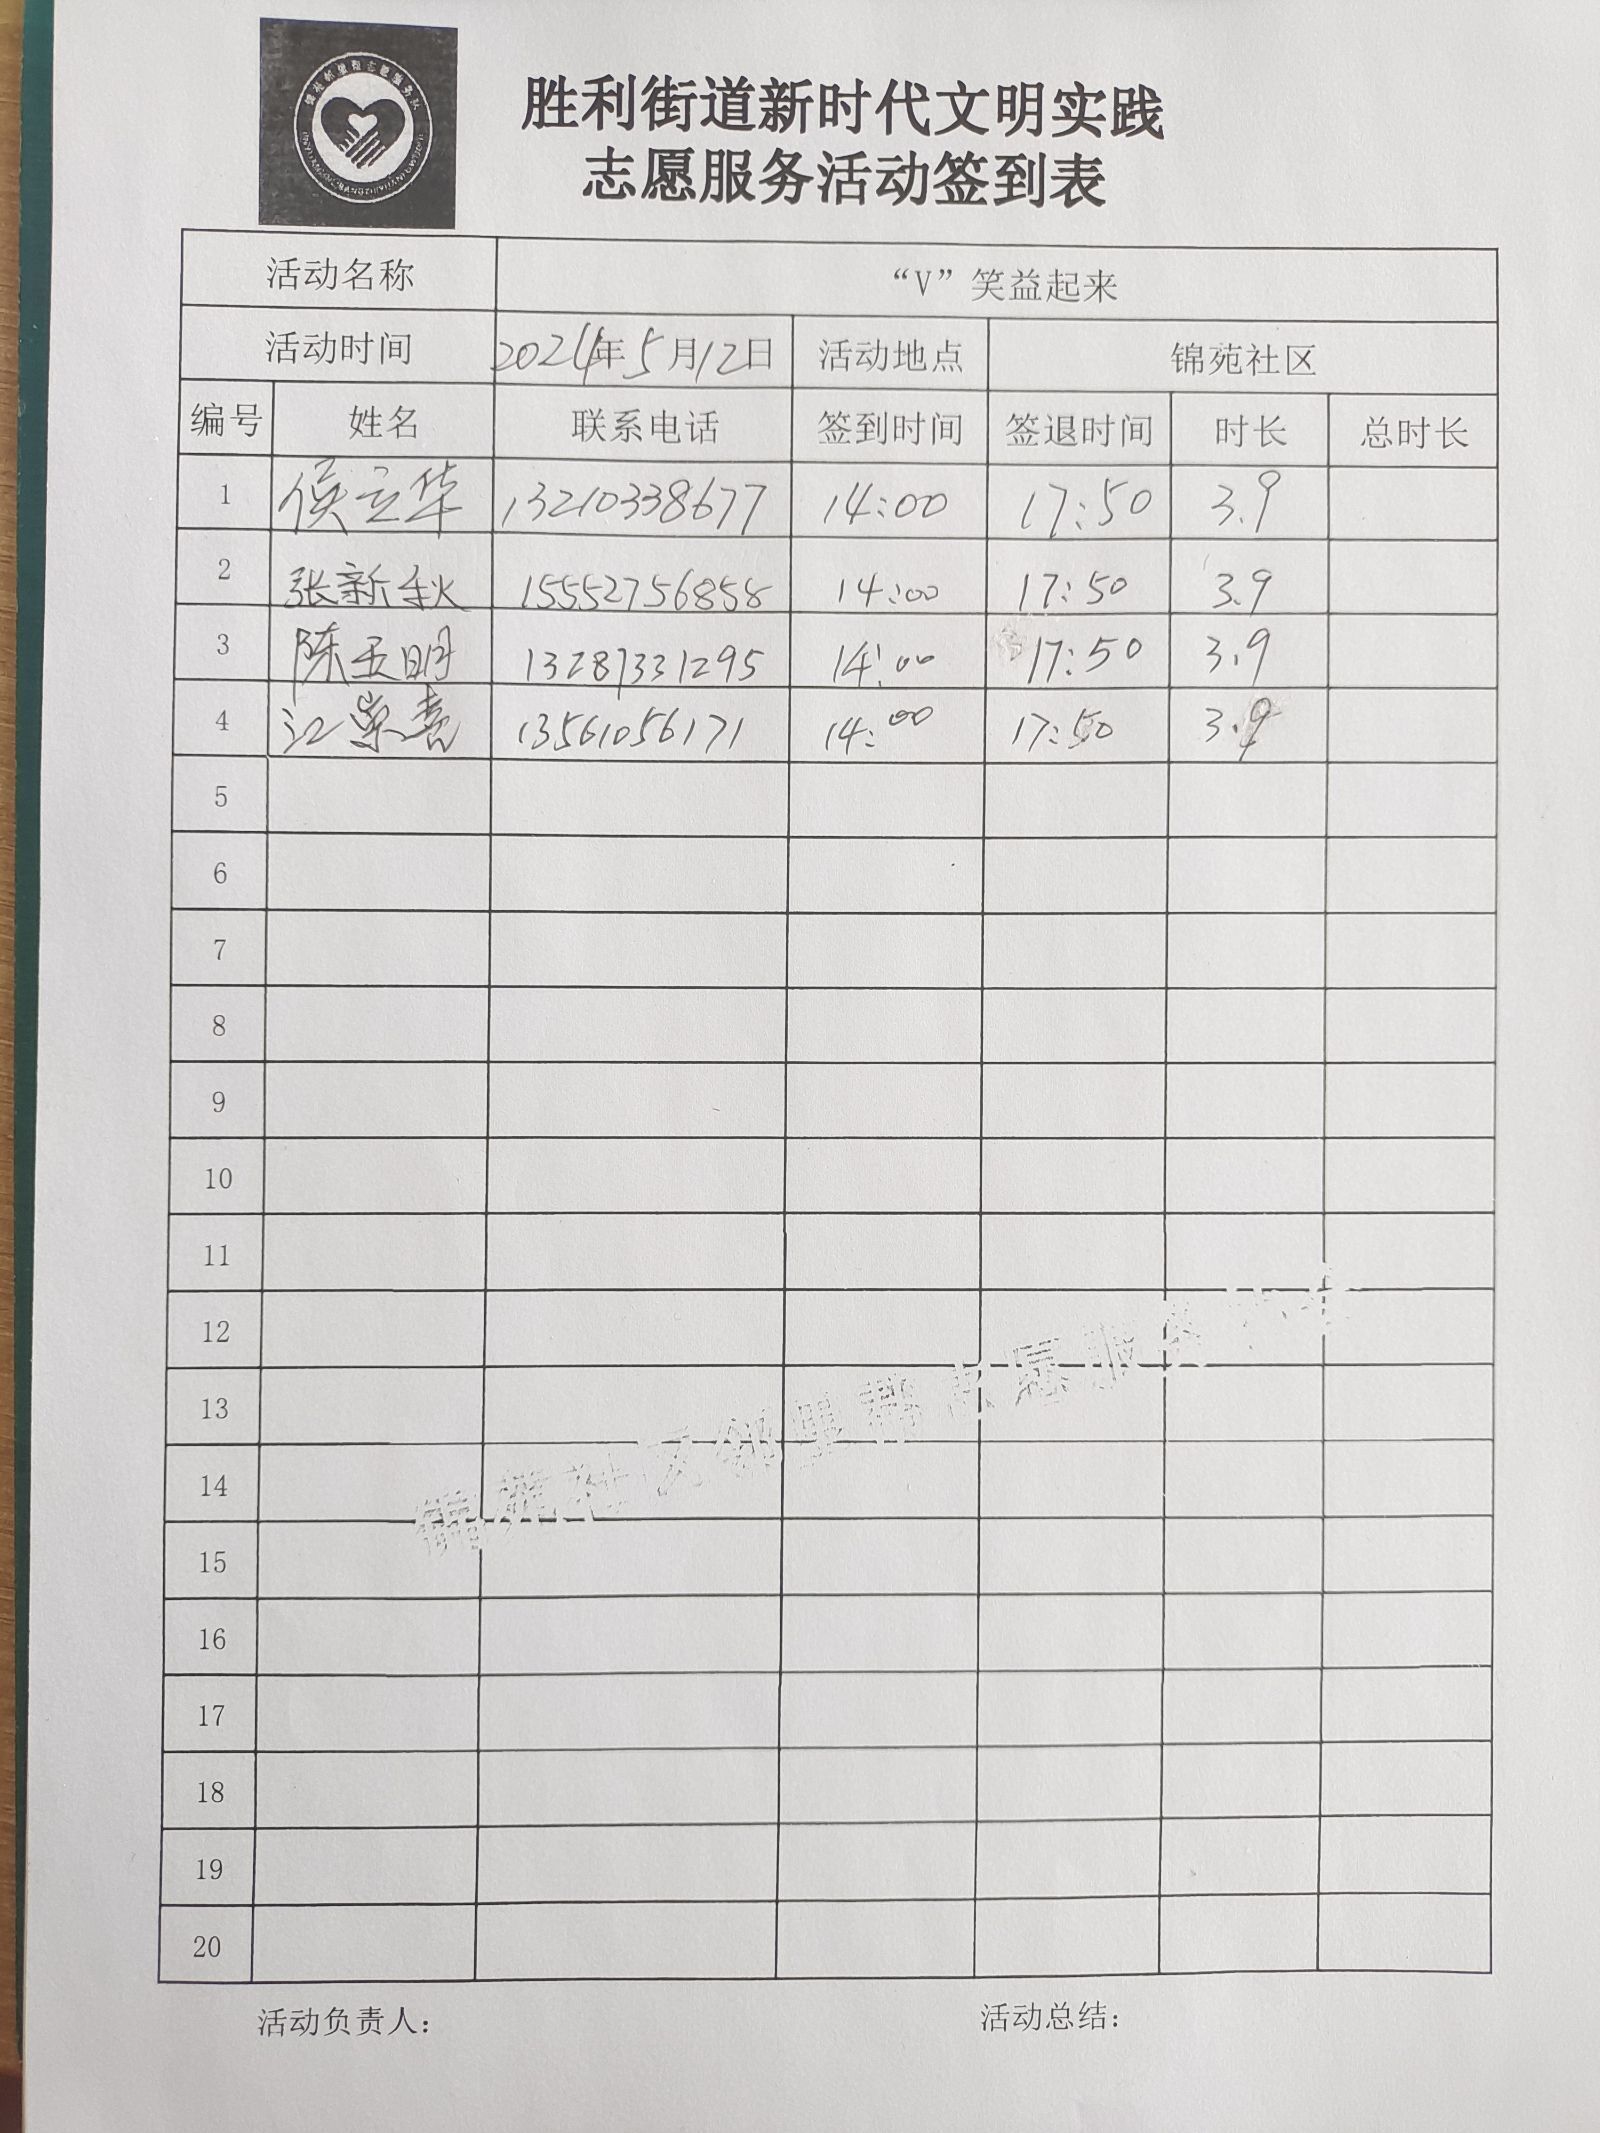 胜利街道新时代文明实践
志愿服务活动签到表
活动名称 “V”笑益起来
活动时间 2024年5月12日 活动地点 锦苑社区
编号 姓名 联系电话 签到时间 签退时间 时长 总时长
1 侯立华 13210338677 14:00 17:50 3.9
2 张新秋 15552756858 14:00 17:50 3.9
3 陈玉明 13287331295 14:00 17:50 3.9
4 江 13561056171 14:00 17:50 3.9
5
6
7
8
9
10
11
12
13
14
15
16
17
18
19
20
锦苑社区邻里帮志愿服务
活动负责人: 活动总结: